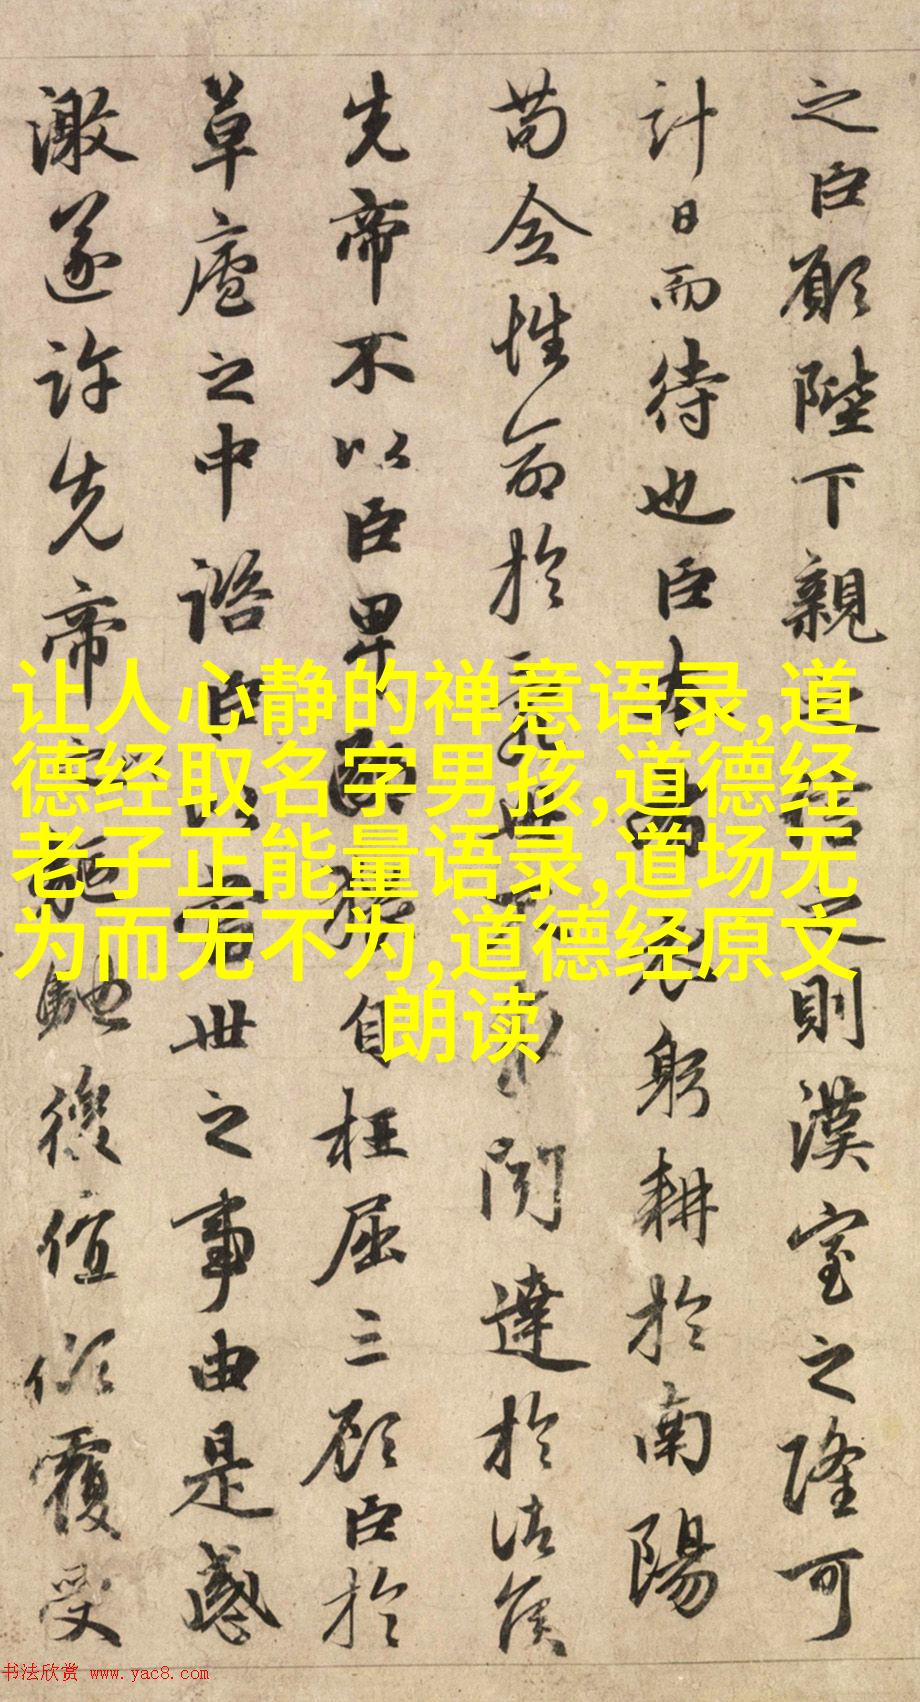 之臣願陛下親之信之則漢室之隆可
計日而待也臣本布衣躬耕於南陽
苟全性命於亂世不求聞達於諸侯
先帝不以臣卑鄙猥自枉屈三顧臣於
草廬之中諮臣以當世之事由是感
激遂許先帝驅馳後值傾覆受
让人心静的禅意语录,道
德经取名字男孩,道德经
老子正能量语录,道场无
为而无不为,道德经原文
朗读
书法欣赏 www.yac8.com